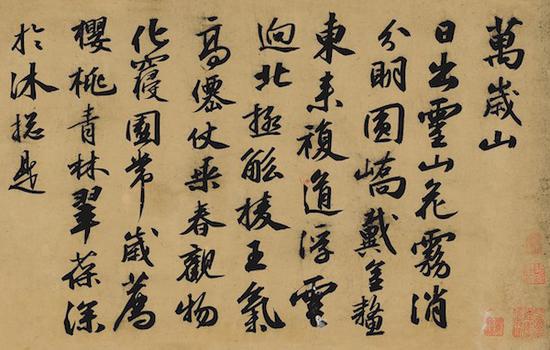 萬歲山
日出靈山花霧消
分明圓嶠戴金鰲
東來複道浮雲
迥北極觚棱王氣
高僊仗乘春觀物
化寢園常歲薦
櫻桃青林翠葆深
於沐揔是